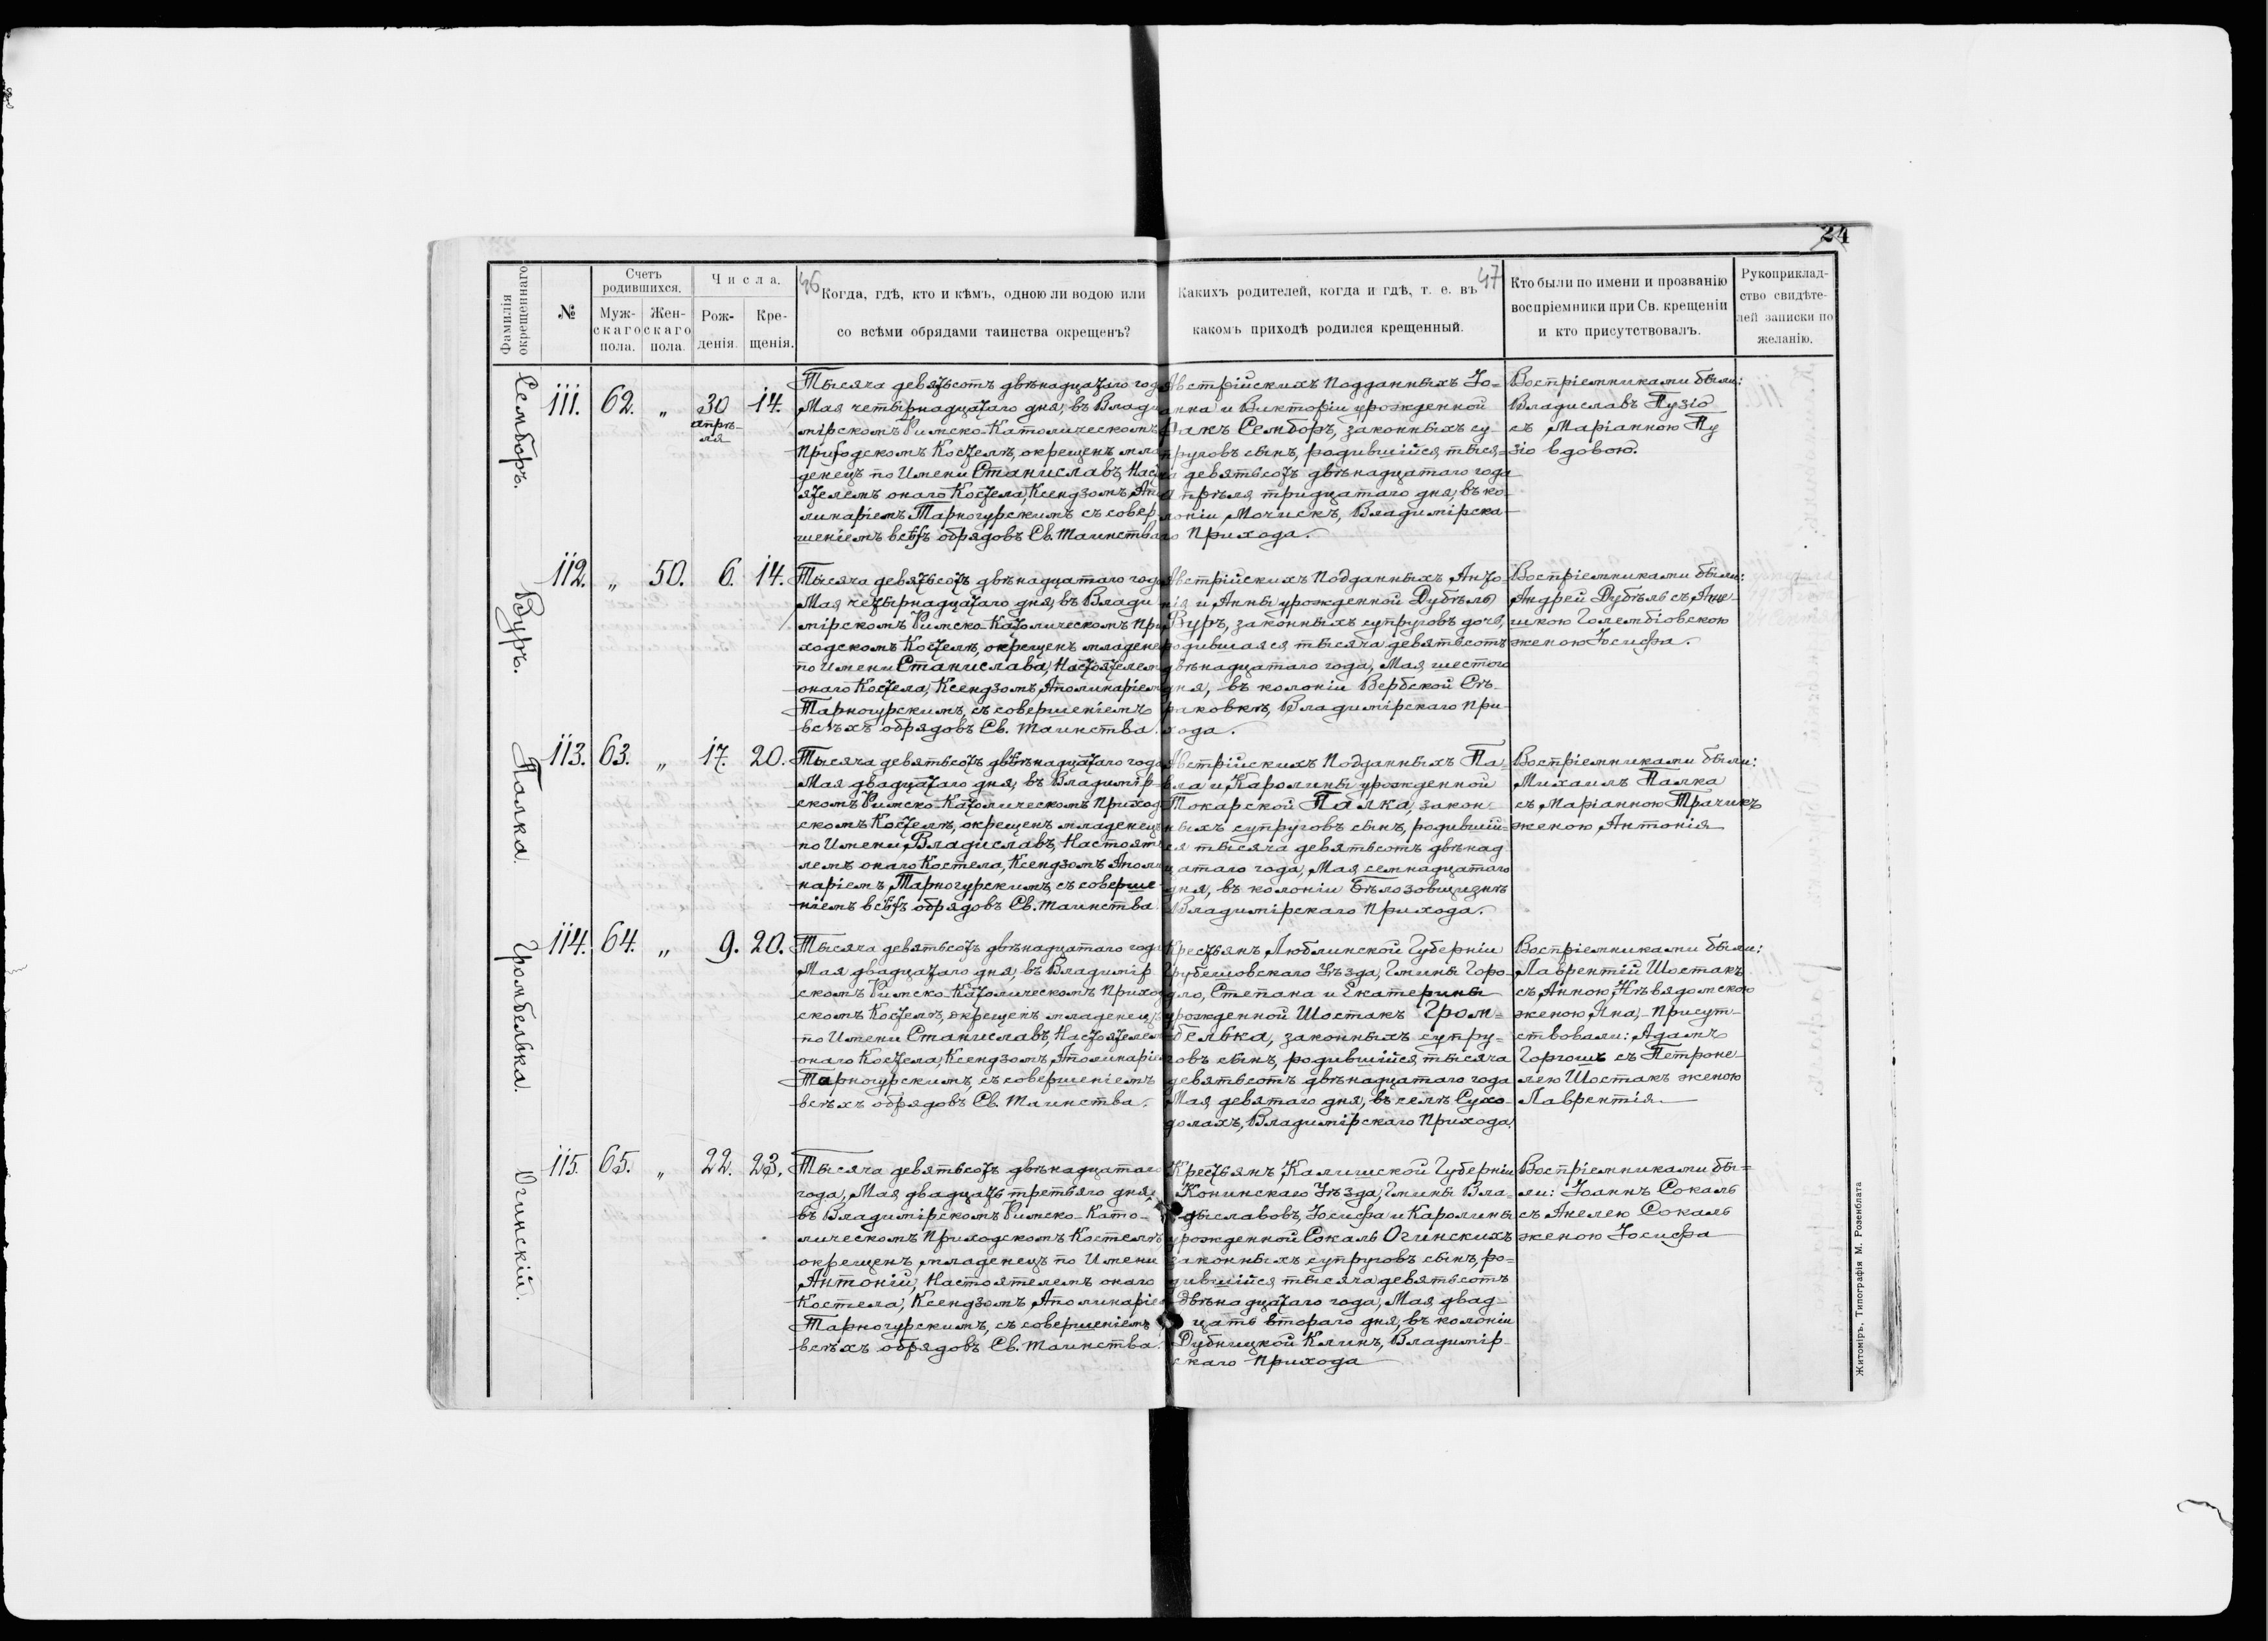 24
46
47
Фамилія окрещеннаго
№
Счетъ родившихся.
Муж-
скаго
пола.
Жен-
скаго
пола.
Числа.
Рож-
денія.
Кре-
щенія.
Когда, гдѣ, кто и кѣмъ, одною ли водою или
со всѣми обрядами таинства окрещенъ?
Какихъ родителей, когда и гдѣ, т. е. въ
какомъ приходѣ родился крещенный.
Кто были по имени и прозванію
воспріемники при Св. крещеніи
и кто присутствовалъ.
Рукоприклад-
ство свидѣте-
лей записки по
желанію.
Семборъ.
111. 62. „ 30 апрѣ-
ля 14.
Тысяча девятьсотъ двѣнадцатаго года
Мая четырнадцатаго дня, въ Влади
мірскомъ Римско-Католическомъ
Приходскомъ Костелѣ, окрещенъ мла
денецъ по Имени Станиславъ, Наст
ятелемъ онаго Костела, Ксендзомъ Апо
линаріемъ Тарногурскимъ съ совер
шеніемъ всѣхъ обрядовъ Св. Таинства
Австрійскихъ Подданныхъ Іо-
анна и Викторіи урожденной
Ракъ Семборъ, законныхъ су-
пруговъ сынъ, родившійся тыся-
ча девятьсотъ двѣнадцатаго года
Апрѣля тридцатаго дня, въ ко-
лоніи Мочискъ, Владимірска-
го Прихода.
Воспріемниками были:
Владиславъ Пузіо
съ Маріанною Пу
зіо вдовою.
Вуръ.
112. „ 50. 6. 14.
Тысяча девятьсотъ двѣнадцатаго года
Мая четырнадцатаго дня, въ Влади
мірскомъ Римско-Католическомъ При
ходскомъ Костелѣ, окрещенъ младене
по Имени Станислава, Настоятелем
онаго Костела, Ксендзомъ Аполинаріем
Тарногурскимъ, съ совершеніемъ
всѣхъ обрядовъ Св. Таинства.
Австрійскихъ Подданныхъ Анто-
нія и Анны урожденной Дубѣль
Вуръ, законныхъ супруговъ дочь,
родившаяся тысяча девятьсотъ
двѣнадцатаго года, Мая шестого
дня, въ колоніи Вербской Съ-
раковкѣ, Владимірскаго При-
хода.
Воспріемниками были:
Андрей Дубѣль съ Агне-
шкою Голембіовскою
женою Іосифа.
Палка.
113. 63. „ 17. 20.
Тысяча девятьсотъ двѣнадцатаго года
Мая двадцатаго дня, въ Владимір-
скомъ Римско-Католическомъ Приход
скомъ Костелѣ, окрещенъ младенецъ
по Имени Владиславъ, Настояте
лемъ онаго Костела, Ксендзомъ Аполи
наріемъ Тарногурскимъ, съ соверше-
ніемъ всѣхъ обрядовъ Св. Таинства.
Австрійскихъ Подданныхъ Па-
вла и Каролины урожденной
Токарской Палка, закон-
ныхъ супруговъ сынъ, родившій-
ся тысяча девятьсотъ двѣнад
цатаго года, Мая семнадцатаго
дня, въ колоніи Бѣлозовщизнѣ
Владимірскаго Прихода.
Воспріемниками были:
Михаилъ Палка
съ Маріанною Трачикъ
женою Антонія
Громбелька.
114. 64. „ 9. 20.
Тысяча девятьсотъ двѣнадцатаго года
Мая двадцатаго дня, въ Владимір
скомъ Римско-Католическомъ Приход
скомъ Костелѣ, окрещенъ младенецъ
по Имени Станиславъ, Настоятелем
онаго Костела, Ксендзомъ Аполинаріе
Тарногурскимъ, съ совершеніемъ
всѣхъ обрядовъ Св. Таинства.
Крестьянъ Люблинской Губерніи
Грубешовскаго Уѣзда, Гмины Горо-
дло, Степана и Екатерины
урожденной Шостакъ Гром-
белька, законныхъ супру-
говъ сынъ, родившійся тысяча
девятьсотъ двѣнадцатаго года
Мая девятаго дня, въ селѣ Сухо-
долахъ, Владимірскаго Прихода.
Воспріемниками были:
Лаврентій Шостакъ
съ Анною Нѣвядомскою
женою Яна, Присут-
ствовали: Адамъ
Горгошъ съ Петроне
лею Шостакъ женою
Лаврентія
Огинскій.
115. 65. „ 22. 23.
Тысяча девятьсотъ двѣнадцатаго
года, Мая двадцать третьяго дня,
въ Владимірскомъ Римско-Като-
лическомъ Приходскомъ Костелѣ
окрещенъ младенецъ по Имени
Антоній, Настоятелемъ онаго
Костела, Ксендзомъ Аполинаріе
Тарногурскимъ, съ совершеніемъ
всѣхъ обрядовъ Св. Таинства.
Крестьянъ Калишской Губерніи
Конинскаго Уѣзда, Гмины Вла-
дыславовъ, Іосифа и Каролины
урожденной Сокалъ Огинскихъ
законныхъ супруговъ сынъ, ро-
дившійся тысяча девятьсотъ
двѣнадцатаго года, Мая двад-
цать втораго дня, въ колоніи
Дубницкой Клинъ, Владимір-
скаго Прихода
Воспріемниками бы-
ли: Іоаннъ Сокалъ
съ Анелею Сокалъ
женою Іосифа
Житоміръ, Типографія М. Розенблата